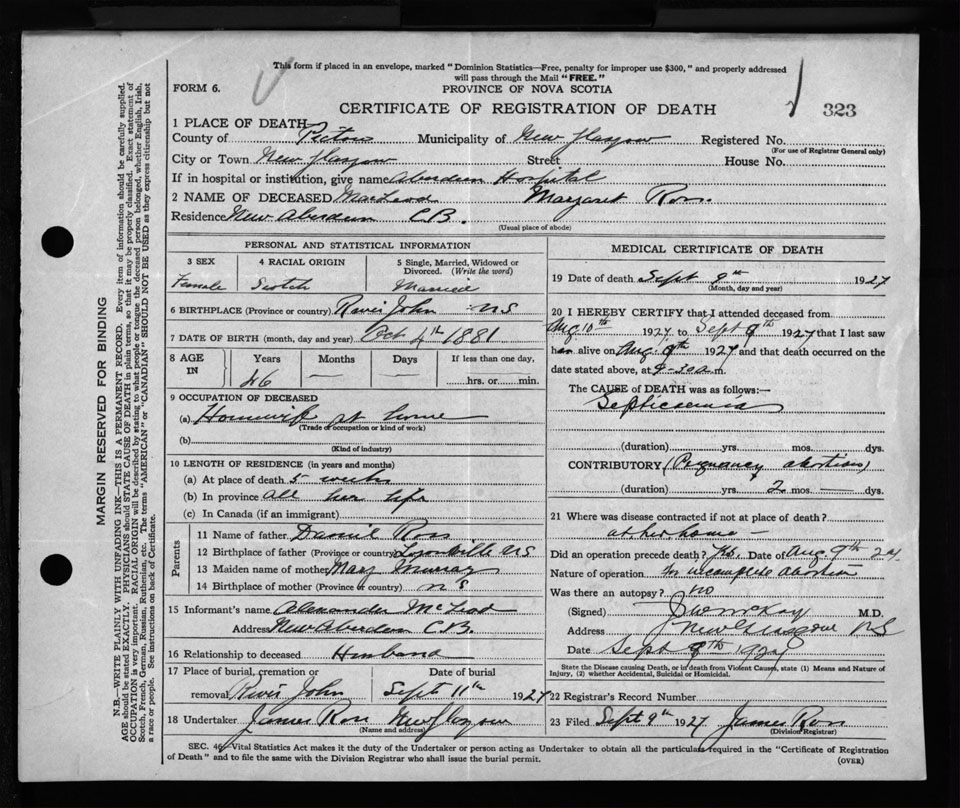 This form if placed in an envelope, marked "Dominion Statistics—Free, penalty for improper use $300," and properly addressed
will pass through the Mail "FREE."
FORM 6.
PROVINCE OF NOVA SCOTIA
CERTIFICATE OF REGISTRATION OF DEATH
323
1 PLACE OF DEATH
County of Pictou Municipality of New Glasgow Registered No.
(For use of Registrar General only)
City or Town New Glasgow Street House No.
If in hospital or institution, give name Aberdeen Hospital
2 NAME OF DECEASED MacLeod Margaret Ross.
Residence New Aberdeen C.B.
(Usual place of abode)
PERSONAL AND STATISTICAL INFORMATION
3 SEX 4 RACIAL ORIGIN 5 Single, Married, Widowed or
Divorced. (Write the word)
Female Scotch Married
6 BIRTHPLACE (Province or country) River John NS
7 DATE OF BIRTH (month, day and year) Oct 4th 1881
8 AGE IN Years Months Days If less than one day,
46 — — hrs. or min.
9 OCCUPATION OF DECEASED
(a) Housewife at home
(Trade or occupation or kind of work)
(b)
(Kind of industry)
10 LENGTH OF RESIDENCE (in years and months)
(a) At place of death 5 weeks
(b) In province all her life
(c) In Canada (if an immigrant)
Parents
11 Name of father Daniel Ross
12 Birthplace of father (Province or country) Loganville NS
13 Maiden name of mother Mary Murray
14 Birthplace of mother (Province or country) NS
15 Informant's name Alexander McLeod
Address New Aberdeen C.B.
16 Relationship to deceased Husband
17 Place of burial, cremation or Date of burial
removal River John Sept 11th 1927
18 Undertaker James Ross New Glasgow
(Name and address)
MEDICAL CERTIFICATE OF DEATH
19 Date of death Sept 9th 1927
(Month, day and year)
20 I HEREBY CERTIFY that I attended deceased from
Aug 10th 1927 to Sept 9th 1927 that I last saw
her alive on Aug. 9th 1927 and that death occurred on the
date stated above, at 9-30 a m.
The CAUSE of DEATH was as follows:—
Septicaemia
(duration) yrs. mos. dys.
CONTRIBUTORY (Pregnancy abortion)
(duration) yrs. 2 mos. — dys.
21 Where was disease contracted if not at place of death?
at her home —
Did an operation precede death? Yes. Date of Aug 9th 27
Nature of operation for incomplete abortion
Was there an autopsy? no
(Signed) J W McKay M.D.
Address New Glasgow NS
Date Sept 9th 1927
State the Disease causing Death, or in death from Violent Causes, state (1) Means and Nature of
Injury, (2) whether Accidental, Suicidal or Homicidal.
22 Registrar's Record Number
23 Filed Sept 9th 1927 James Ross
(Division Registrar)
SEC. 40 Vital Statistics Act makes it the duty of the Undertaker or person acting as Undertaker to obtain all the particulars required in the "Certificate of Registration
of Death" and to file the same with the Division Registrar who shall issue the burial permit.
(OVER)
MARGIN RESERVED FOR BINDING
N.B.—WRITE PLAINLY WITH UNFADING INK—THIS IS A PERMANENT RECORD. Every item of information should be carefully supplied.
AGE should be stated EXACTLY. PHYSICIANS should STATE CAUSE OF DEATH in plain terms, so that it may be properly classified. Exact statement of
OCCUPATION is very important. RACIAL ORIGIN will be described by stating to what people or tongue the deceased person belonged, whether English, Irish,
Scotch, French, German, Russian, Ruthenian, etc. The terms "AMERICAN" or "CANADIAN" SHOULD NOT BE USED as they express citizenship but not
a race or people. See instructions on back of Certificate.